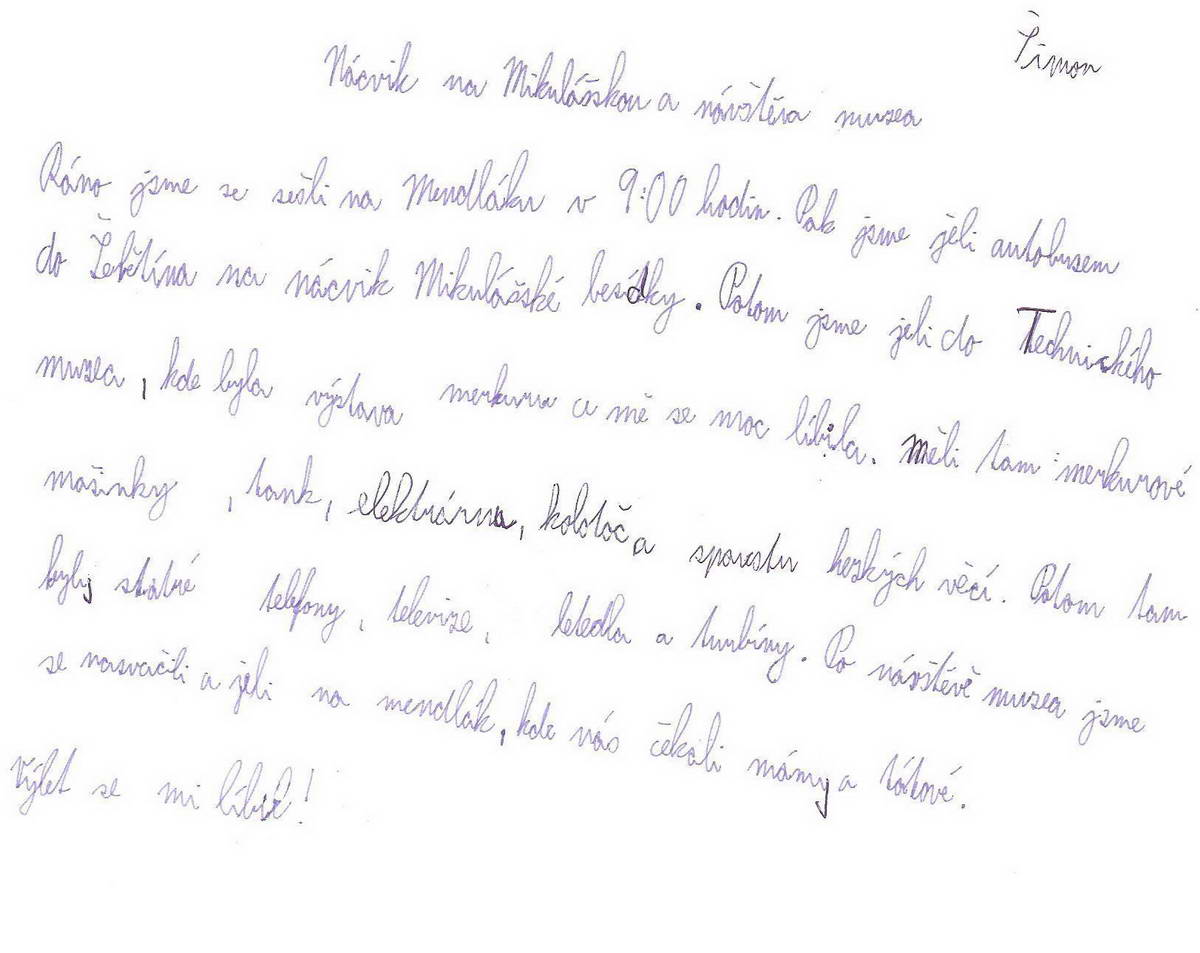 Šimon
Nácvik na Mikulášskou a návštěva muzea
Ráno jsme se sešli na Mendláku v 9:00 hodin. Pak jsme jeli autobusem
do Žebětína na nácvik Mikulášské besídky. Potom jsme jeli do Technického
muzea, kde byla výstava merkuru a mě se moc líbila. měli tam merkurové
mašinky, tank, elektrárna, kolotoč a spoustu heských věcí. Potom tam
byly staré telefony, televize, letedla a turbíny. Po návštěvě muzea jsme
se nasvačili a jeli na mendlák, kde nás čekali mámy a tátové.
Výlet se mi líbil!